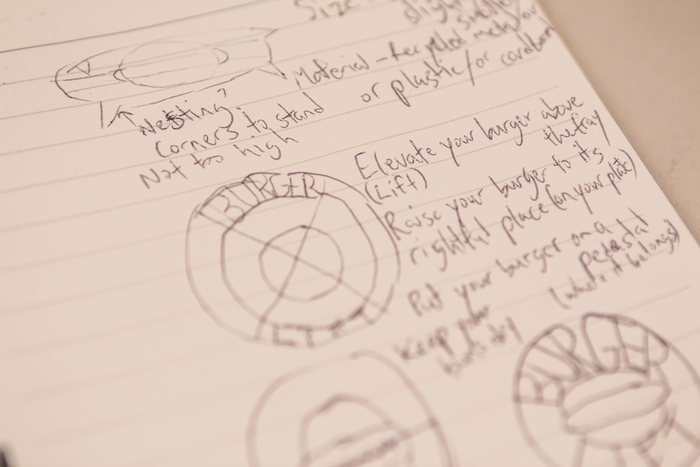 Size -
slightly
smaller
Material - recycled metal or
or plastic/or
Nesting?
Corners to stand
Not too high
BURGER
LIFT
Elevate your burger above
the tray
(Lift)
Raise your burger to its
rightful place (on your plate)
Put your burger on a
pedestal
(where it belongs)
Keep your
BURGER